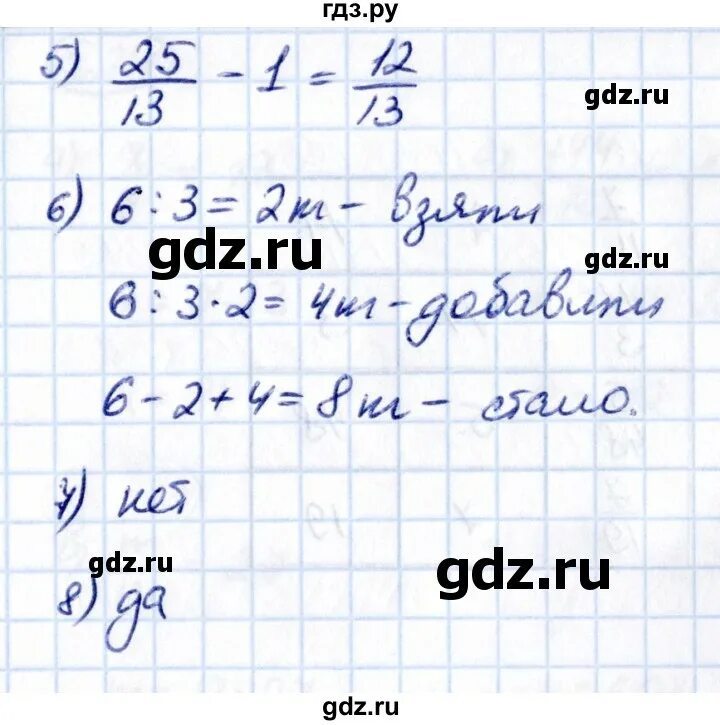 гдз.ру
5) 25/13 - 1 = 12/13
gdz.ru
6) 6 : 3 = 2т - взяли
gdz.ru
gdz.ru
6 : 3 · 2 = 4т - добавили
6 - 2 + 4 = 8т - стало.
7) нет
gdz.ru
gdz.ru
8) да
gdz.ru